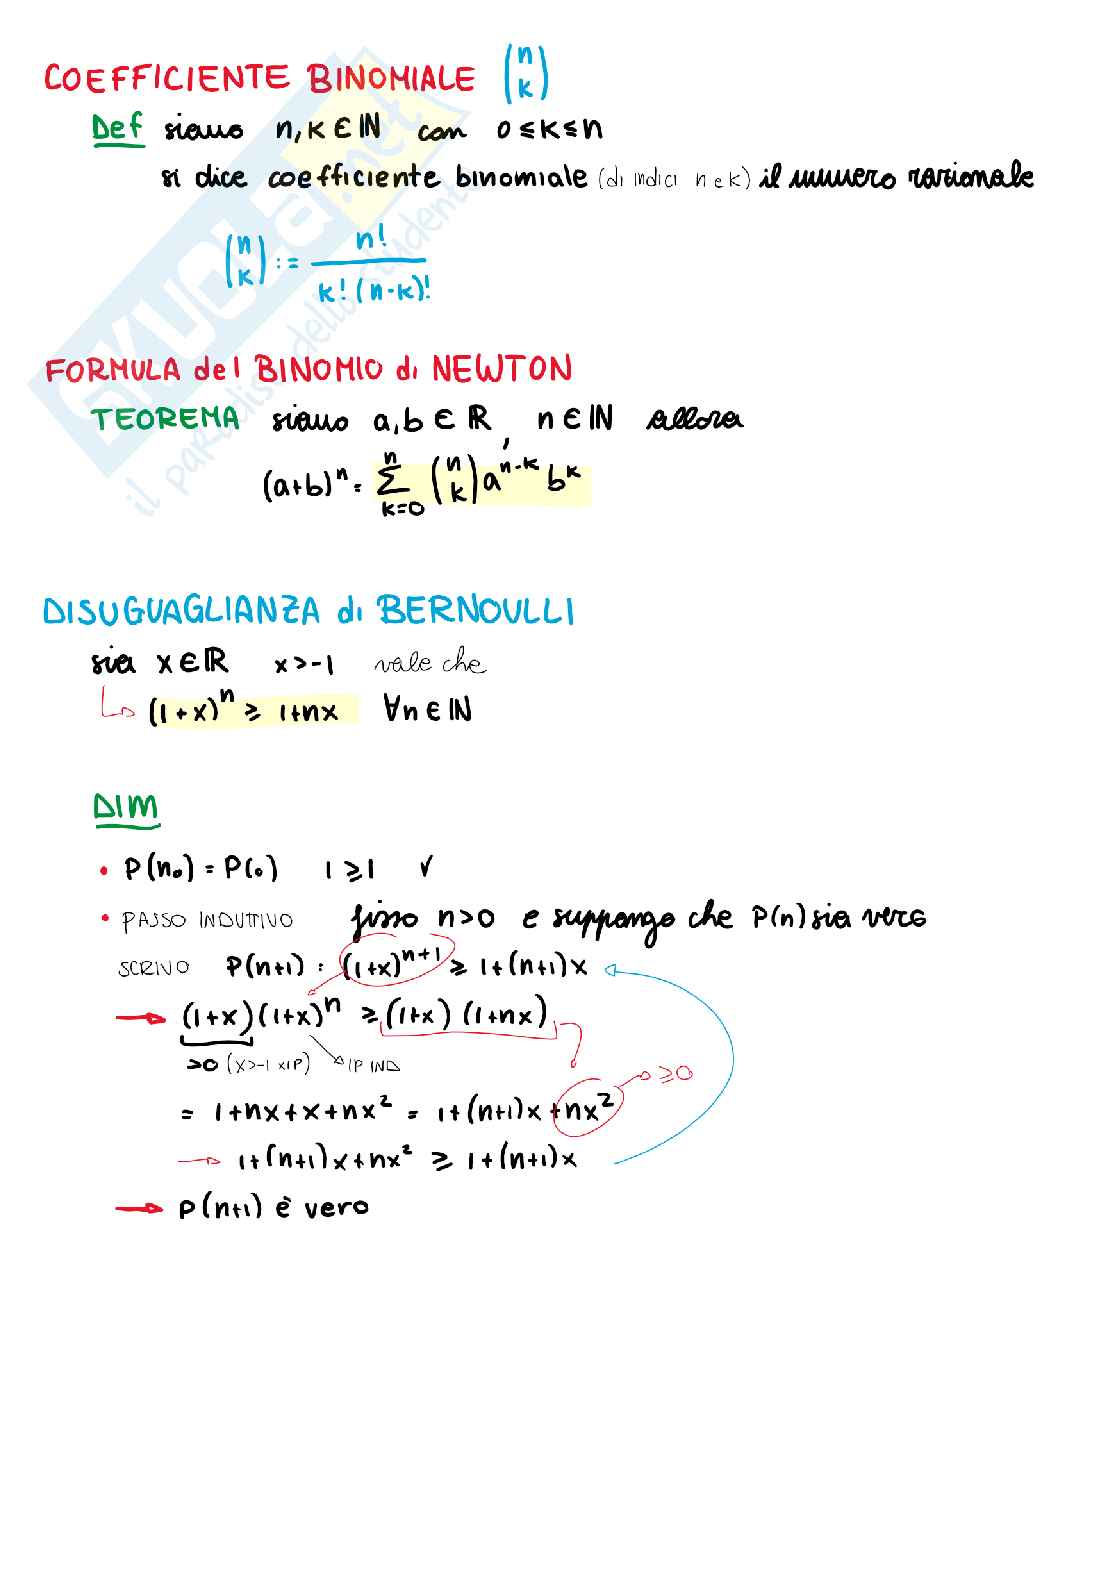 COEFFICIENTE BINOMIALE (n k)
Def siano n, k ∈ ℕ con 0 ≤ k ≤ n
si dice coefficiente binomiale (di indici n e k) il numero razionale
(n k) := n! / k! (n-k)!
FORMULA del BINOMIO di NEWTON
TEOREMA siano a, b ∈ ℝ, n ∈ ℕ allora
(a+b)ⁿ = Σ_{k=0}^{n} (n k) a^{n-k} b^k
DISUGUAGLIANZA di BERNOULLI
sia x ∈ ℝ x > -1 vale che
↳ (1+x)ⁿ ≥ 1+nx ∀n ∈ ℕ
DIM
• P(n₀) = P(0) 1 ≥ 1 ✓
• PASSO INDUTTIVO fisso n>0 e suppongo che P(n) sia vero
SCRIVO P(n+1) : (1+x)^{n+1} ≥ 1+(n+1)x
→ (1+x)(1+x)ⁿ ≥ (1+x)(1+nx)
>0 (x>-1 x IP) IP IND
≥0
= 1+nx+x+nx² = 1+(n+1)x+nx²
→ 1+(n+1)x+nx² ≥ 1+(n+1)x
→ P(n+1) è vero
SKUOLA.net
il paradiso dello studente